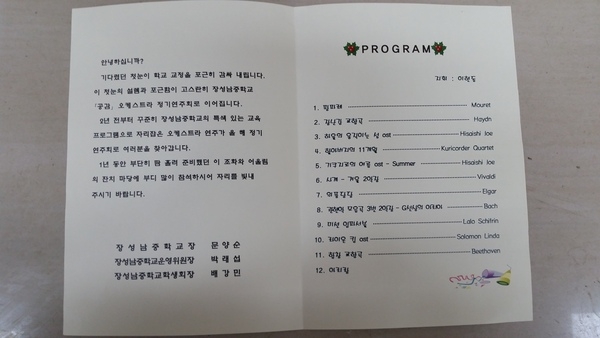 안녕하십니까?
기다렸던 첫눈이 학교 교정을 포근히 감싸 내립니다.
이 첫눈의 설렘과 포근함이 고스란히 장성남중학교
「공감」 오케스트라 정기연주회로 이어집니다.
2년 전부터 꾸준히 장성남중학교의 특색 있는 교육
프로그램으로 자리잡은 오케스트라 연주가 올 해 정기
연주회로 여러분을 찾아갑니다.
1년 동안 부단히 땀 흘려 준비했던 이 조화와 어울림
의 잔치 마당에 부디 많이 참석하시어 자리를 빛내
주시기 바랍니다.
장성남중학교장 문양순
장성남중학교운영위원장 박래섭
장성남중학교학생회장 배강민
PROGRAM
지휘 : 이현동
1. 팡파레 Mouret
2. 장난감 교향곡 Haydn
3. 하울의 움직이는 성 ost Hisaishi Joe
4. 할아버지의 11개월 Kuricorder Quartet
5. 기쿠지로의 여름 ost - Summer Hisaishi Joe
6. 사계 - 겨울 2악장 Vivaldi
7. 위풍당당 Elgar
8. 관현악 모음곡 3번 2악장 - G선상의 아리아 Bach
9. 미션 임파서블 Lalo Schifrin
10. 라이온 킹 ost Solomon Linda
11. 합창 교향곡 Beethoven
12. 아리랑